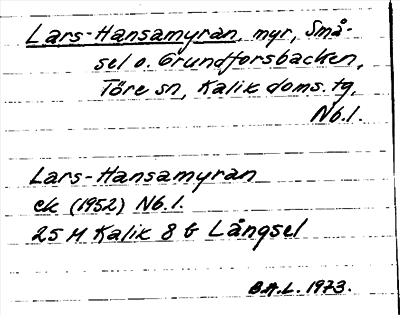 Lars-Hansamyran, myr, Små-
sel o. Grundforsbacken,
Töre sn, Kalix doms. tg,
Nb.l.
Lars-Hansamyran
ek (1952) Nb. l.
25 M Kalix 8 b Långsel
B.A.L. 1973.